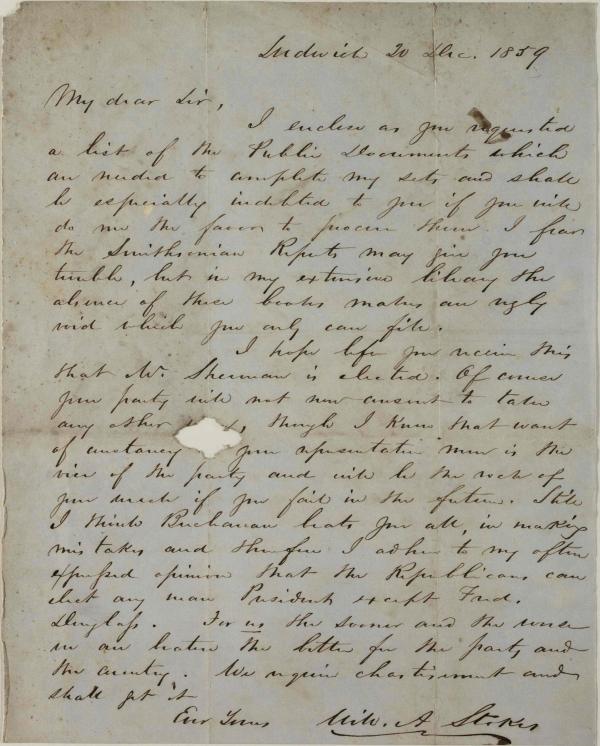 Ludwick 20 Dec. 1859
My dear Sir,
I enclose as you requested
a list of the Public Documents which
are needed to complete my sets and shall
be especially indebted to you if you will
do me the favor to procure them. I fear
the Smithsonian Reports may give you
trouble, but in my extensive library the
absence of these books makes an ugly
void which you only can fill.
I hope before you receive this
that Mr. Sherman is elected. Of course
your party will not now consent to take
any other, though I know that want
of constancy your representative men is the
vice of the party and will be the rock of
your wreck if you fail in the future. Still
I think Buchanan beats you all, in making
mistakes and therefore I adhere to my often
expressed opinion that the Republicans can
elect any man President except Fred.
Douglass. For us the sooner and the worse
we are beaten the better for the party and
the country. We require chastisement and
shall get it
Ever Yours Will. A Stokes